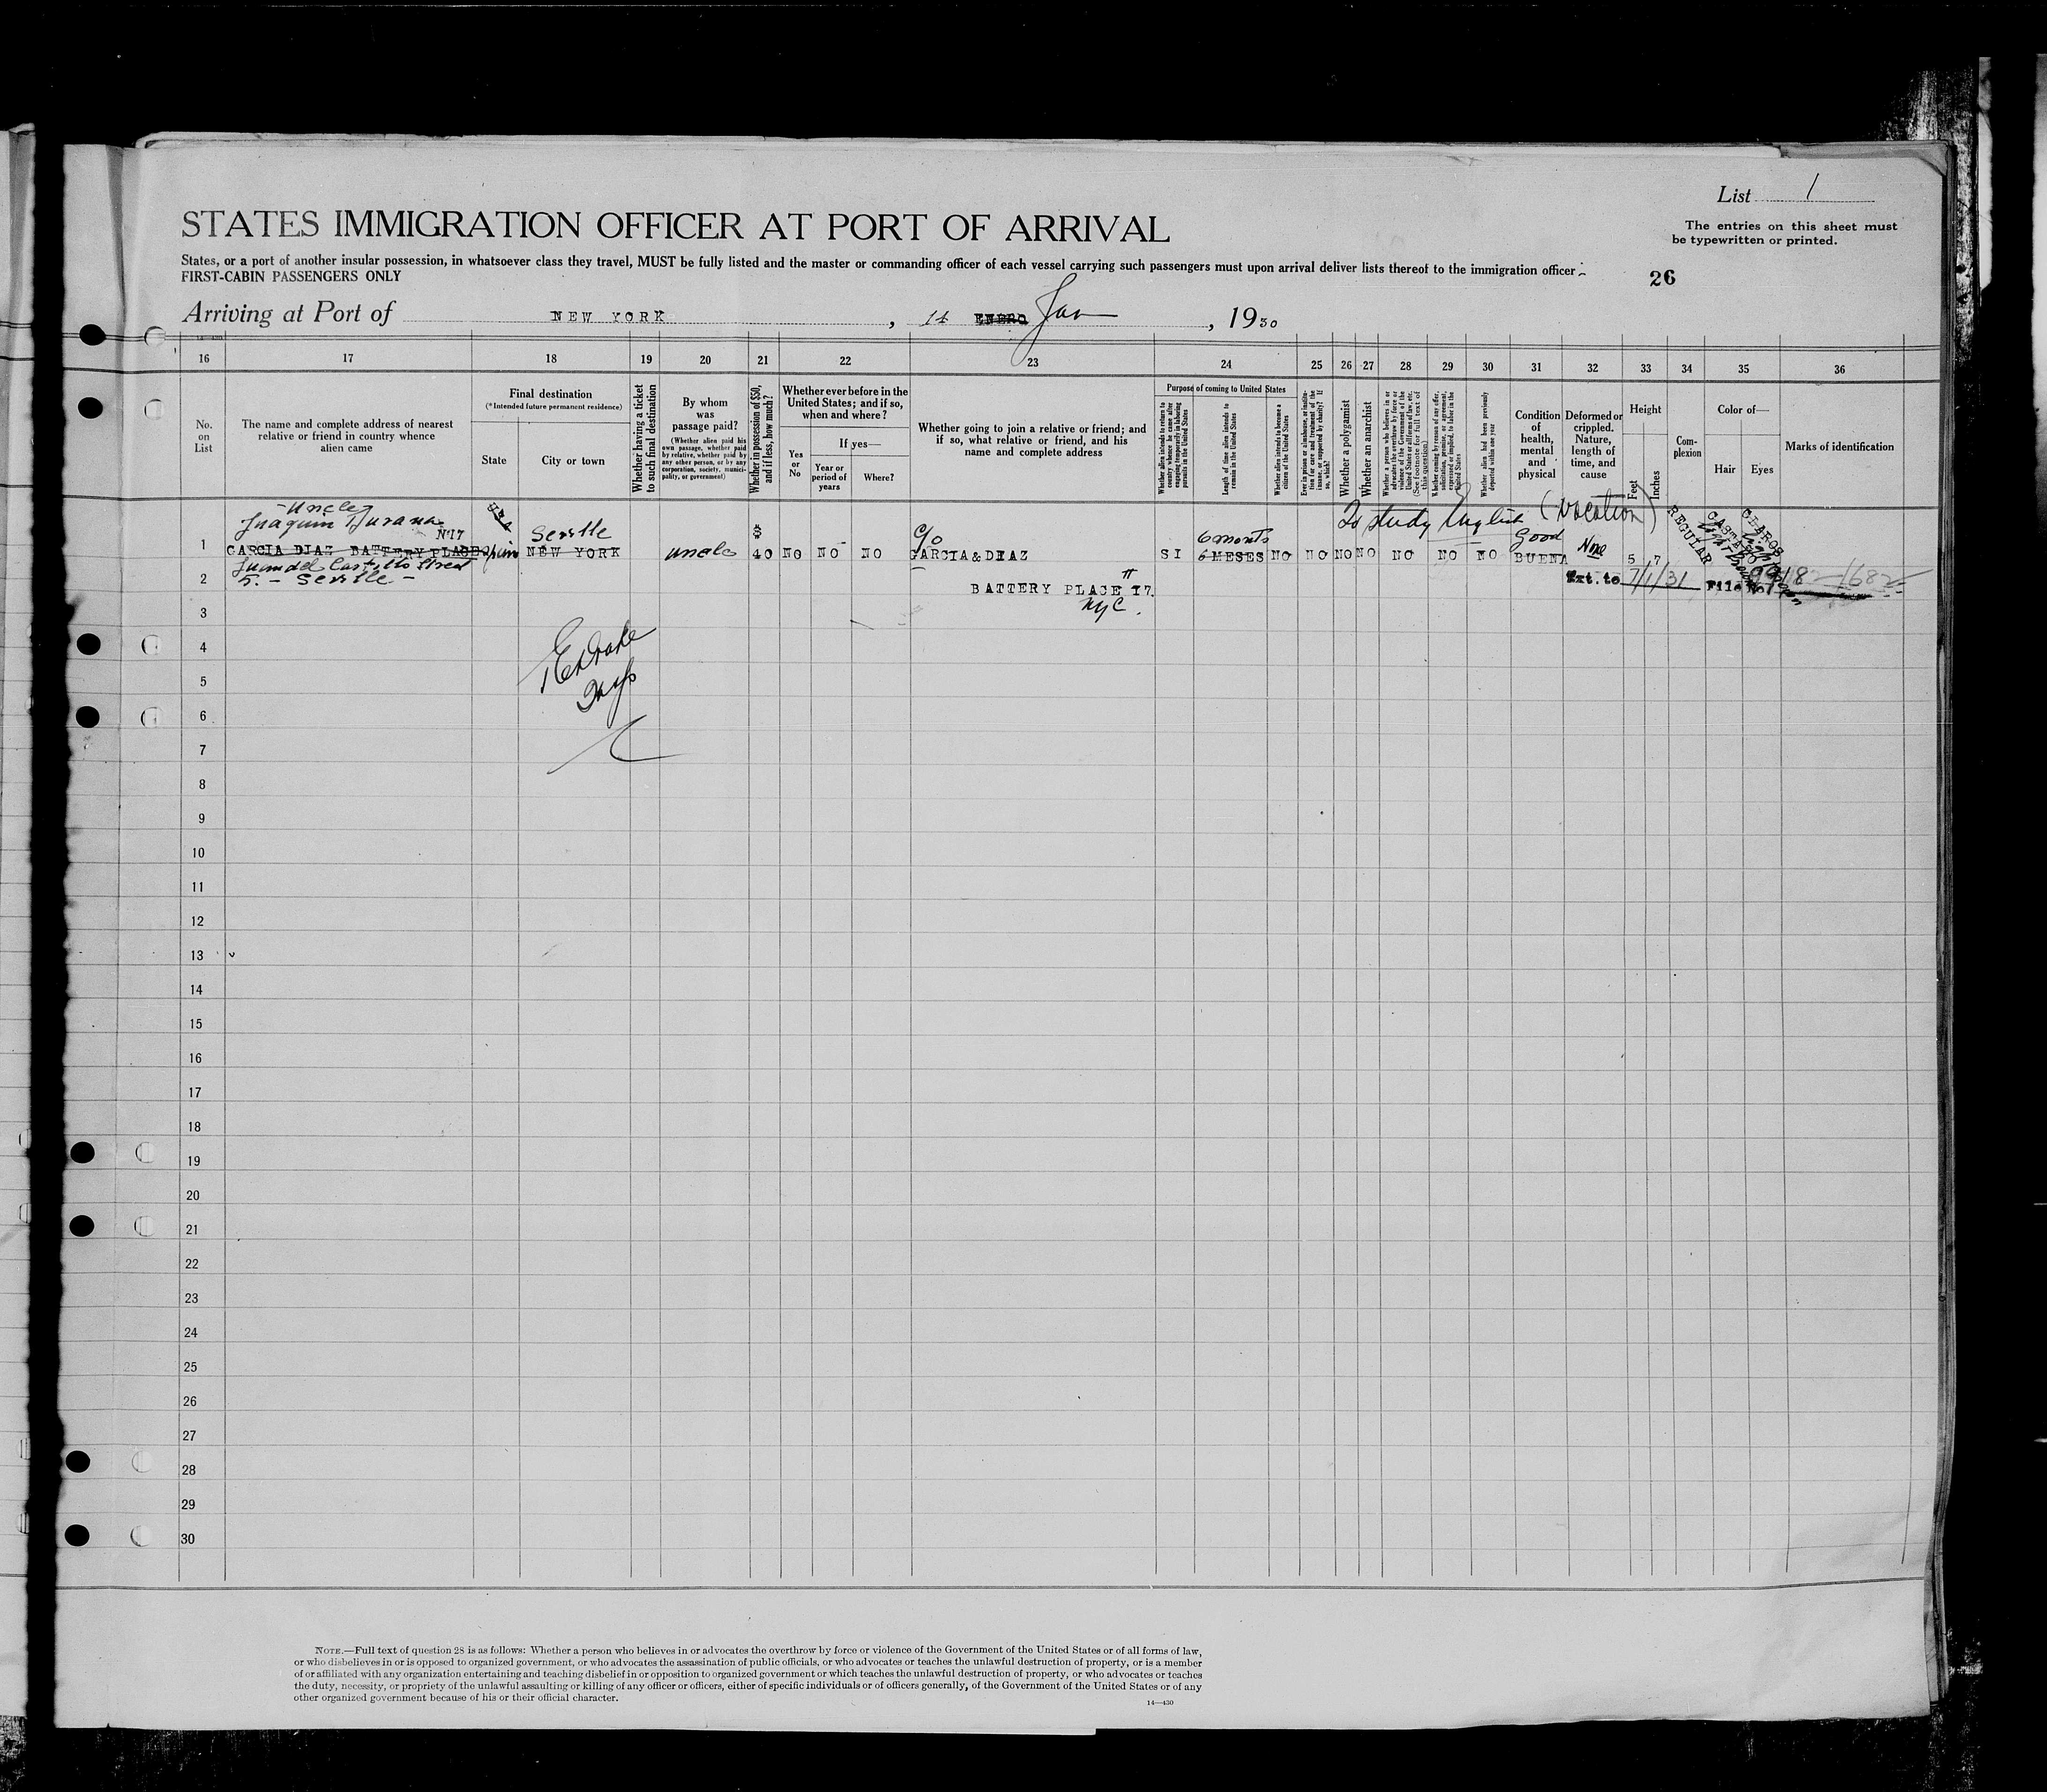 List 1
STATES IMMIGRATION OFFICER AT PORT OF ARRIVAL
The entries on this sheet must
be typewritten or printed.
States, or a port of another insular possession, in whatsoever class they travel, MUST be fully listed and the master or commanding officer of each vessel carrying such passengers must upon arrival deliver lists thereof to the immigration officer
FIRST-CABIN PASSENGERS ONLY
26
Arriving at Port of NEW YORK, 14 ENERO Jan, 1930
16 17 18 19 20 21 22 23 24 25 26 27 28 29 30 31 32 33 34 35 36
No.
on
List
The name and complete address of nearest
relative or friend in country whence
alien came
Final destination
(*Intended future permanent residence)
State
City or town
Whether having a ticket
to such final destination
By whom
was
passage paid?
(Whether alien paid his
own passage, whether paid
by relative, whether paid by
any other person, or by any
corporation, society, munici-
pality, or government)
Whether in possession of $50,
and if less, how much?
Whether ever before in the
United States; and if so,
when and where?
Yes
or
No
If yes—
Year or
period of
years
Where?
Whether going to join a relative or friend; and
if so, what relative or friend, and his
name and complete address
Purpose of coming to United States
Whether alien intends to return to
country whence he came after
engaging temporarily in laboring
pursuits in the United States
Length of time alien intends to
remain in the United States
Whether alien intends to become a
citizen of the United States
Ever in prison or almshouse, or institu-
tion for care and treatment of the
insane, or supported by charity? If
so, which?
Whether a polygamist
Whether an anarchist
Whether a person who believes in or
advocates the overthrow by force or
violence of the Government of the
United States or all forms of law, etc.
(See footnote for full text of
this question)
Whether coming by reason of any offer,
solicitation, promise, or agreement,
expressed or implied, to labor in the
United States
Whether alien had been previously
deported within one year
Condition
of
health,
mental
and
physical
Deformed or
crippled.
Nature,
length of
time, and
cause
Height
Feet
Inches
Com-
plexion
Color of—
Hair
Eyes
Marks of identification
- Uncle
Joaquin
Nº17
USA
Seville
$
c/o
6 months
To study English (vacation)
Good
None
1 GARCIA DIAZ BATTERY PLACE NEW YORK uncle 40 NO NO NO GARCIA & DIAZ SI 6 MESES NO NO NO NO NO NO NO BUENA 5 7 REGULAR CLAROS
Street
2 5. - Seville -
BATTERY PLACE 17.
NYC.
Ext. to 7/1/31 File No.
3
4
5
6
7
8
9
10
11
12
13
14
15
16
17
18
19
20
21
22
23
24
25
26
27
28
29
30
NOTE.—Full text of question 28 is as follows: Whether a person who believes in or advocates the overthrow by force or violence of the Government of the United States or of all forms of law,
or who disbelieves in or is opposed to organized government, or who advocates the assassination of public officials, or who advocates or teaches the unlawful destruction of property, or is a member
of or affiliated with any organization entertaining and teaching disbelief in or opposition to organized government or which teaches the unlawful destruction of property, or who advocates or teaches
the duty, necessity, or propriety of the unlawful assaulting or killing of any officer or officers, either of specific individuals or of officers generally, of the Government of the United States or of any
other organized government because of his or their official character.
14—430